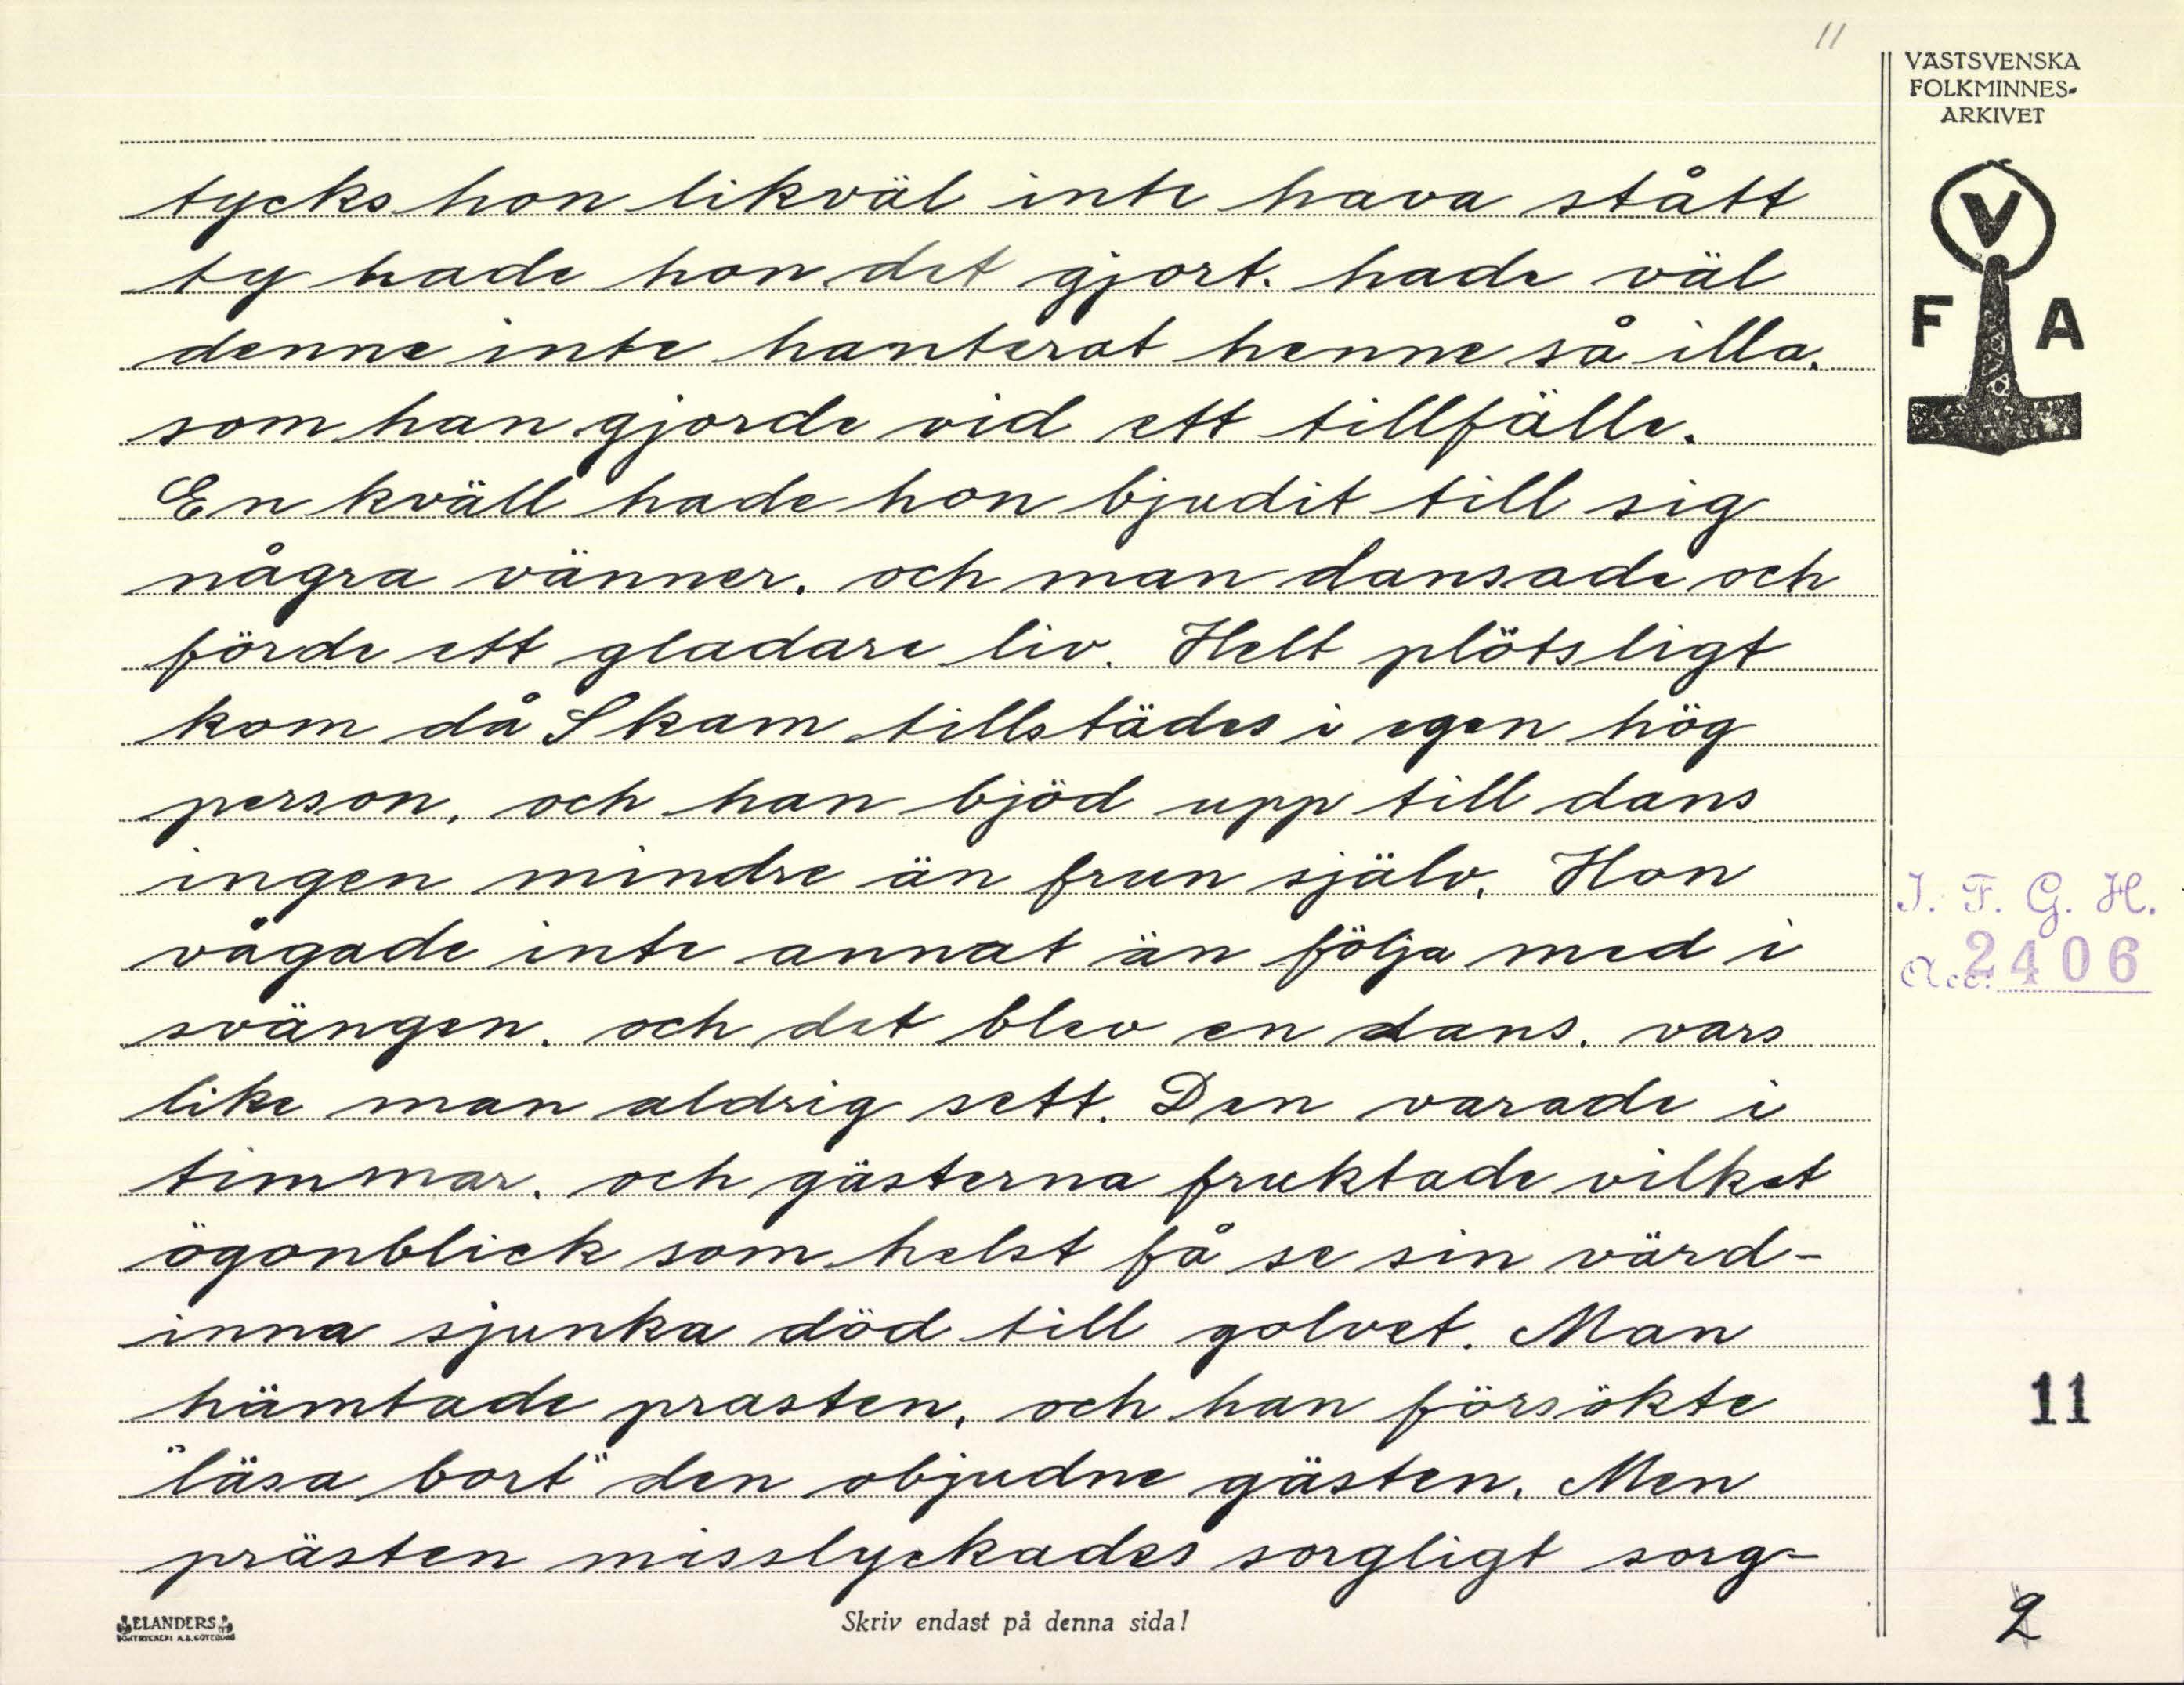 11
VÄSTSVENSKA
FOLKMINNES-
ARKIVET
V
F A
tycks hon likväl inte hava stått
ty hade hon det gjort. hade väl
denne inte hanterat henne så illa,
som han gjorde vid ett tillfälle.
En kväll hade hon bjudit till sig
några vänner, och man dansade och
förde ett gladare liv. Helt plötsligt
kom då Skam tillstädes i egen hög
person, och han bjöd upp till dans
ingen mindre än frun själv. Hon
vågade inte annat än följa med i
svängen, och det blev en dans, vars
like man aldrig sett. Den varade i
timmar, och gästerna fruktade vilket
ögonblick som helst få se sin värd-
inna sjunka död till golvet. Man
hämtade prasten, och han försökte
"läsa bort" den objudne gästen. Men
prästen misslyckades sorgligt sorg-
I. F. G. H.
Acc. 2406
11
2
ELANDERS
BOKTRYCKERI A.B. GÖTEBORG
Skriv endast på denna sida!